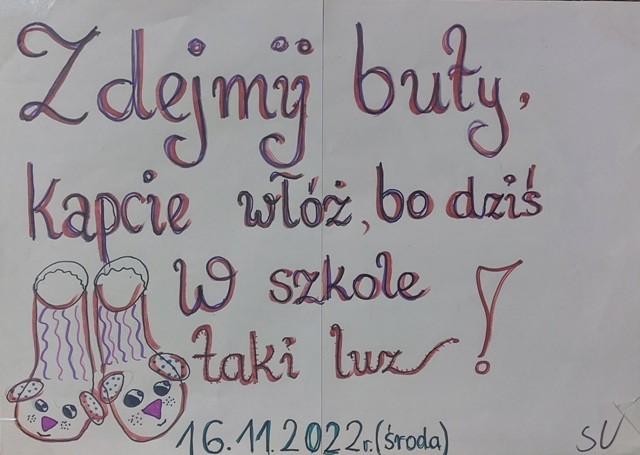 Zdejmij buty,
kapcie włóż, bo dziś
w szkole
taki luz!
16.11.2022r. (środa)
SU